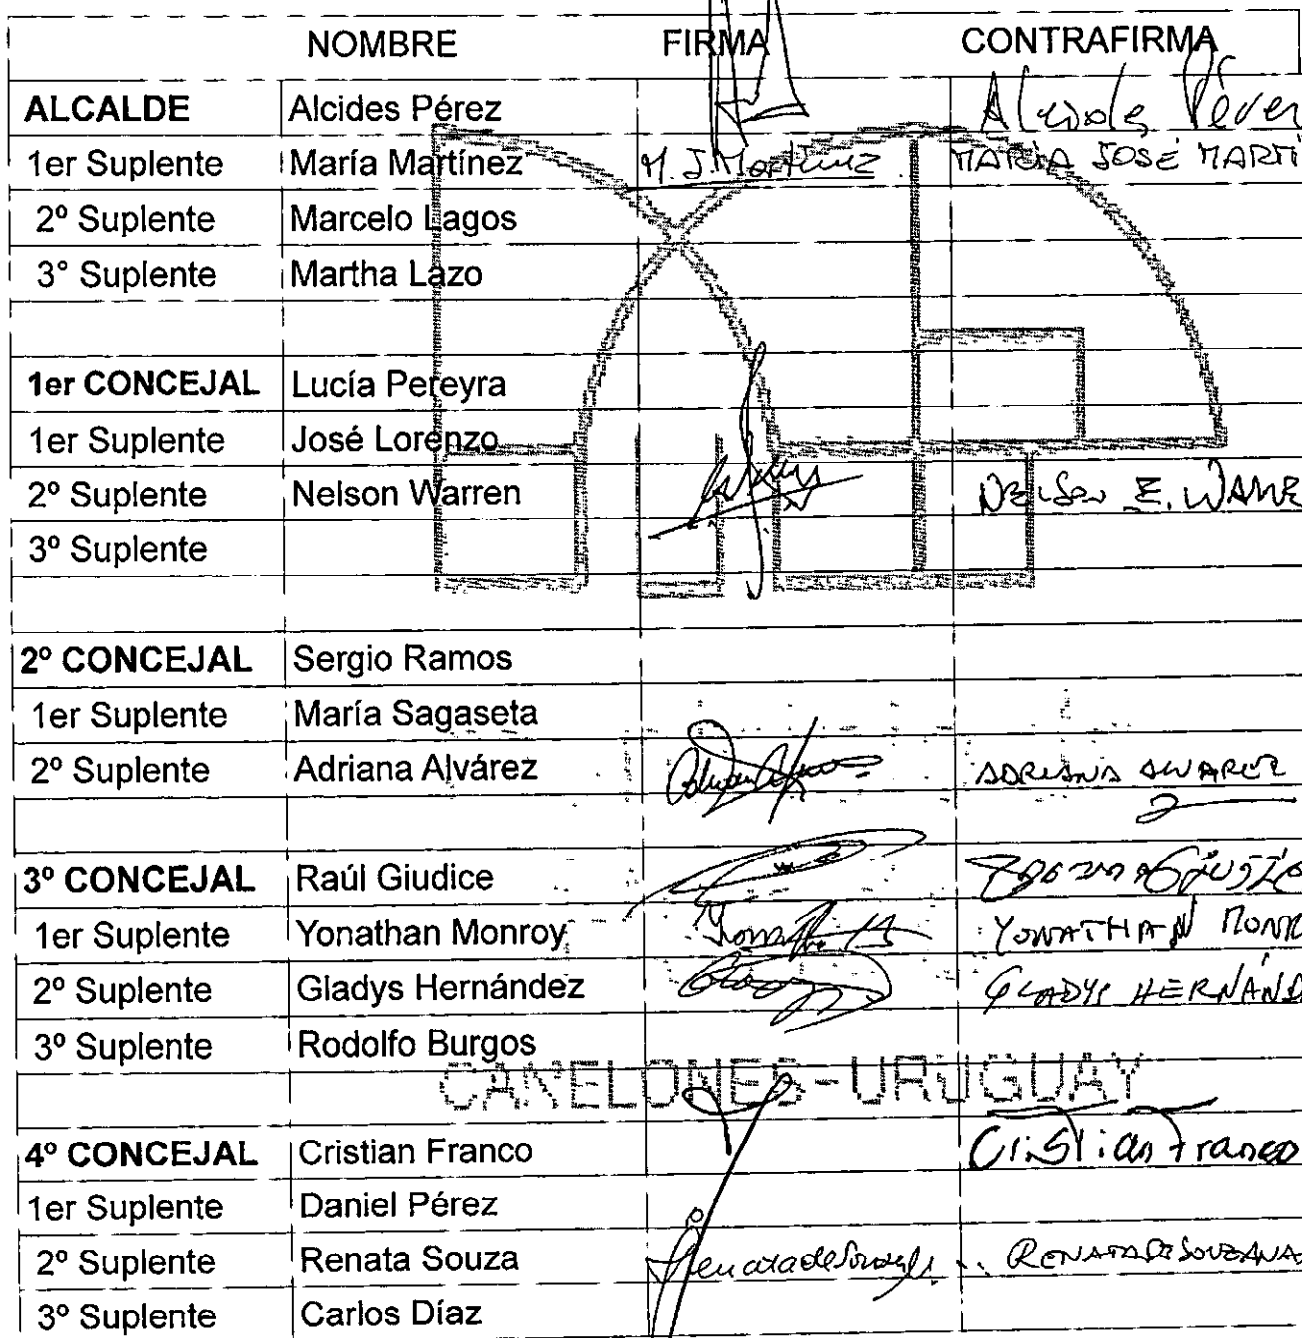 NOMBRE FIRMA CONTRAFIRMA
ALCALDE Alcides Pérez Alcides Pérez
1er Suplente María Martínez M. J. Martínez MARÍA JOSÉ MARTÍ
2º Suplente Marcelo Lagos
3° Suplente Martha Lazo
1er CONCEJAL Lucía Pereyra
1er Suplente José Lorenzo
2º Suplente Nelson Warren NELSON E. WARRE
3º Suplente
2º CONCEJAL Sergio Ramos
1er Suplente María Sagaseta
2º Suplente Adriana Alvárez ADRIANA ALVAREZ
3º CONCEJAL Raúl Giudice
1er Suplente Yonathan Monroy YONATHAN MONR
2º Suplente Gladys Hernández GLADYS HERNÁND
3º Suplente Rodolfo Burgos
CANELONES-URUGUAY
4º CONCEJAL Cristian Franco Cristian Franco
1er Suplente Daniel Pérez
2º Suplente Renata Souza
3º Suplente Carlos Díaz